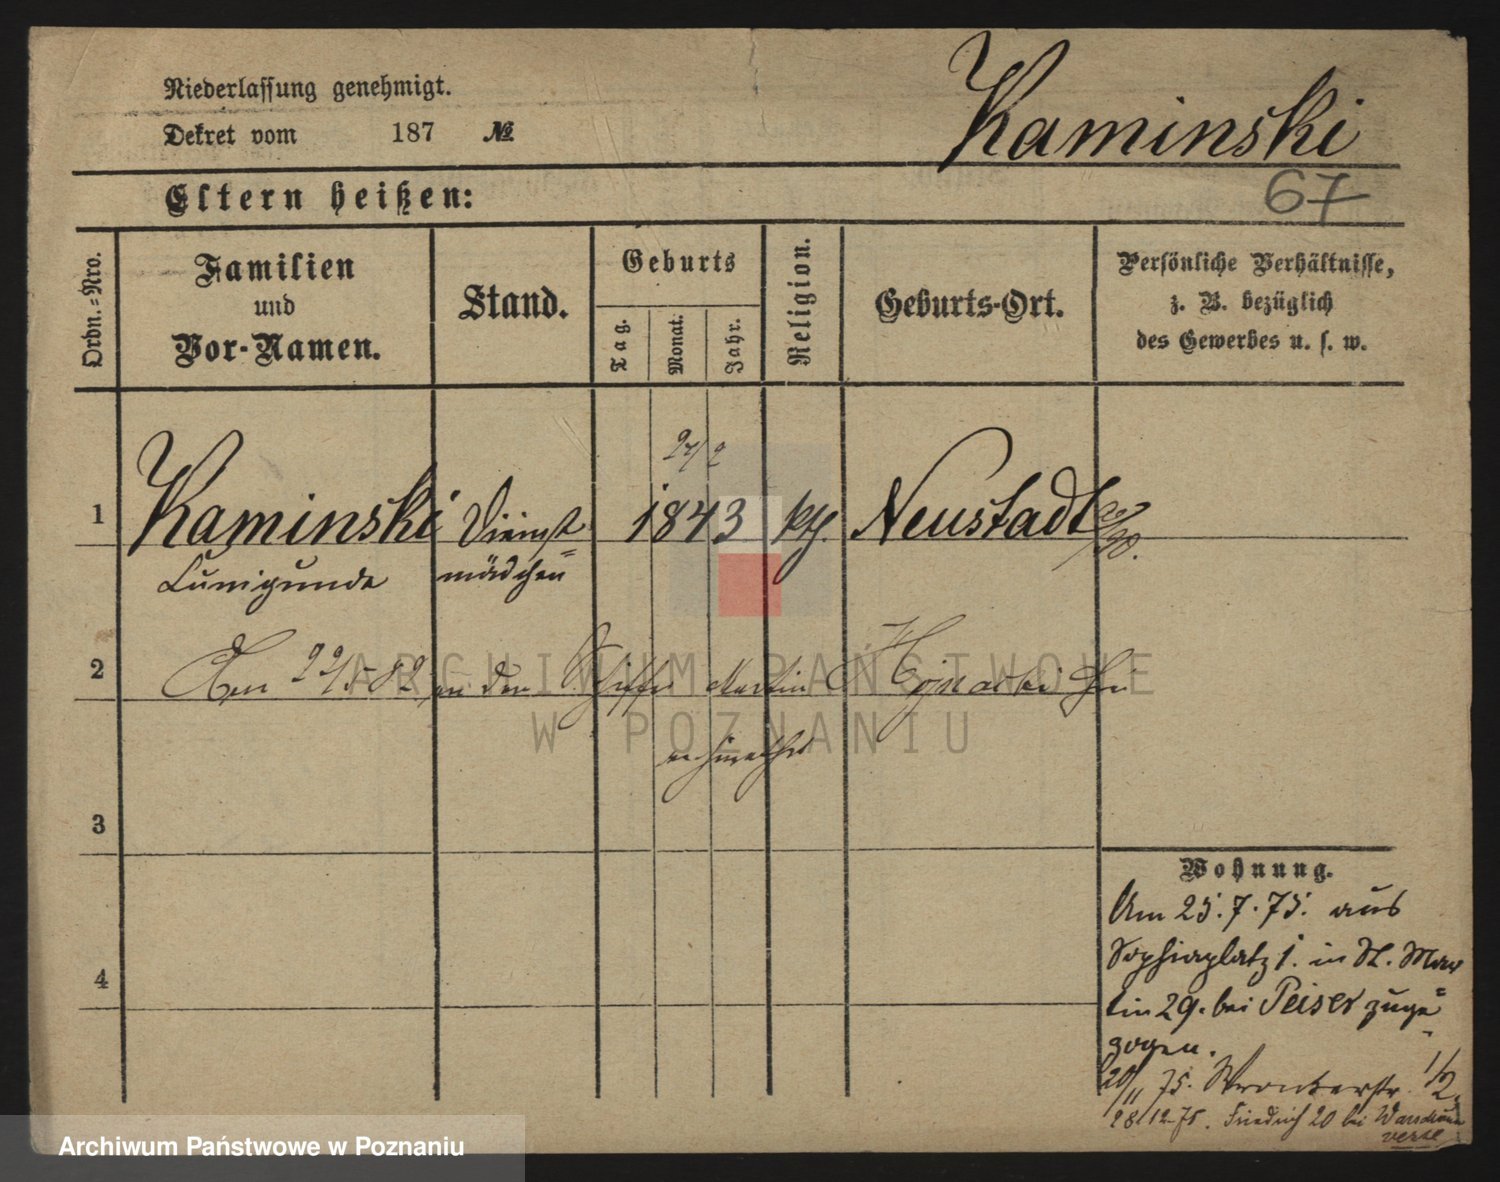 Niederlassung genehmigt.
Dekret vom 187 №
Kaminski
67
Eltern heißen:
Ordn.=Nro.
Familien
und
Vor-Namen.
Stand.
Geburts
Tag.
Monat.
Jahr.
Religion.
Geburts-Ort.
Persönliche Verhältnisse,
z. B. bezüglich
des Gewerbes u. s. w.
27/2
1 Kaminski Dienst= 1843 kth. Neustadt
Cunigunde mädchen
2 Am 22/5 82 an den Schiffer Martin
verheirathet
3
4
Wohnung.
Am 25.7.75. aus
Sophienplatz 1. in St. Mar
tin 29. bei Peiser zuge=
zogen.
20/11 75. Wronkerstr. 1/2
28/12 75. Friedrich 20 bei
ARCHIWUM PAŃSTWOWE
W POZNANIU
Archiwum Państwowe w Poznaniu